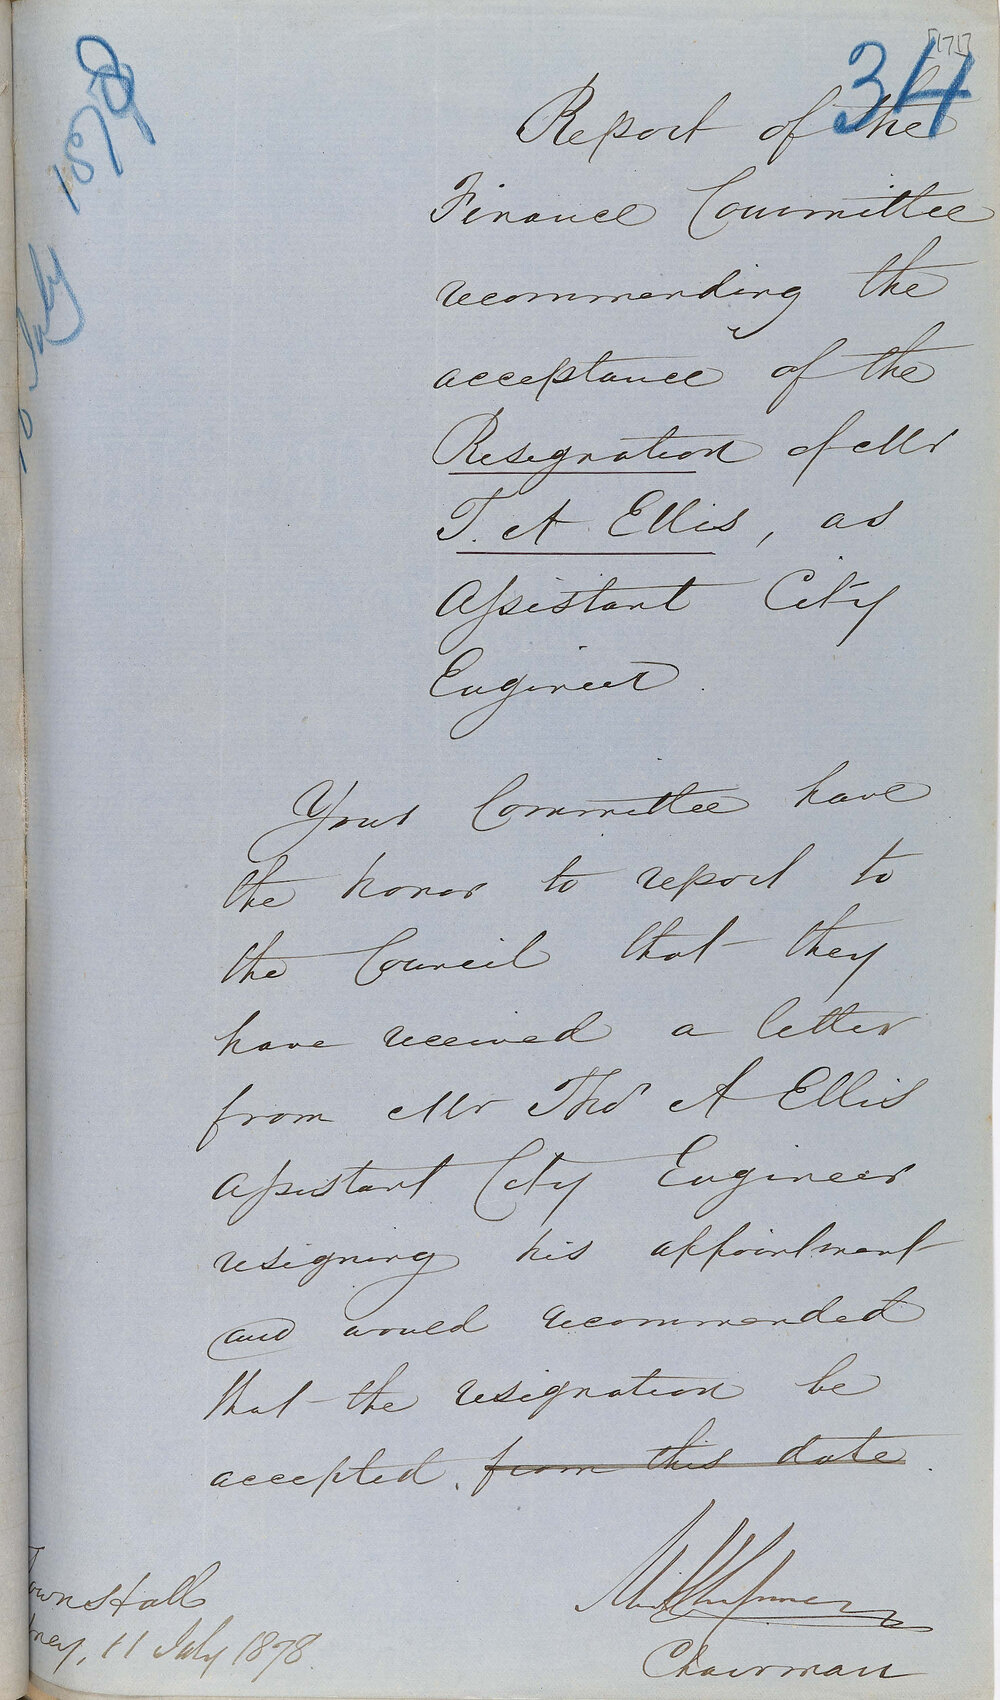 [171]
34
1878
July
Report of the
Finance Committee
recommending the
acceptance of the
Resignation of Mr
T. A. Ellis, as
Assistant City
Engineer.
Your Committee have
the honor to report to
the Council that they
have received a letter
from Mr Thos A Ellis
Assistant City Engineer
resigning his appointment
and would recommended
that the resignation be
accepted. from this date.
Chairman
Town Hall
ney, 11 July 1878.